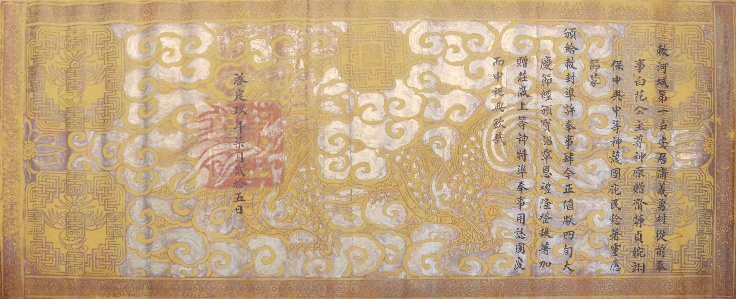 敕河城第一義勇村從前奉
事白花公主尊神原贈齋靜貞婉翊
保中興中等神護國庇民稔著靈應
節蒙
頒給敕封準許奉事肆今正值朕四旬大
慶節經頒寶詔覃恩禮隆登秩著加
贈莊嚴上等神特準奉事用誌國慶
而申祀典欽哉
啓定玖年柒月貳拾五日